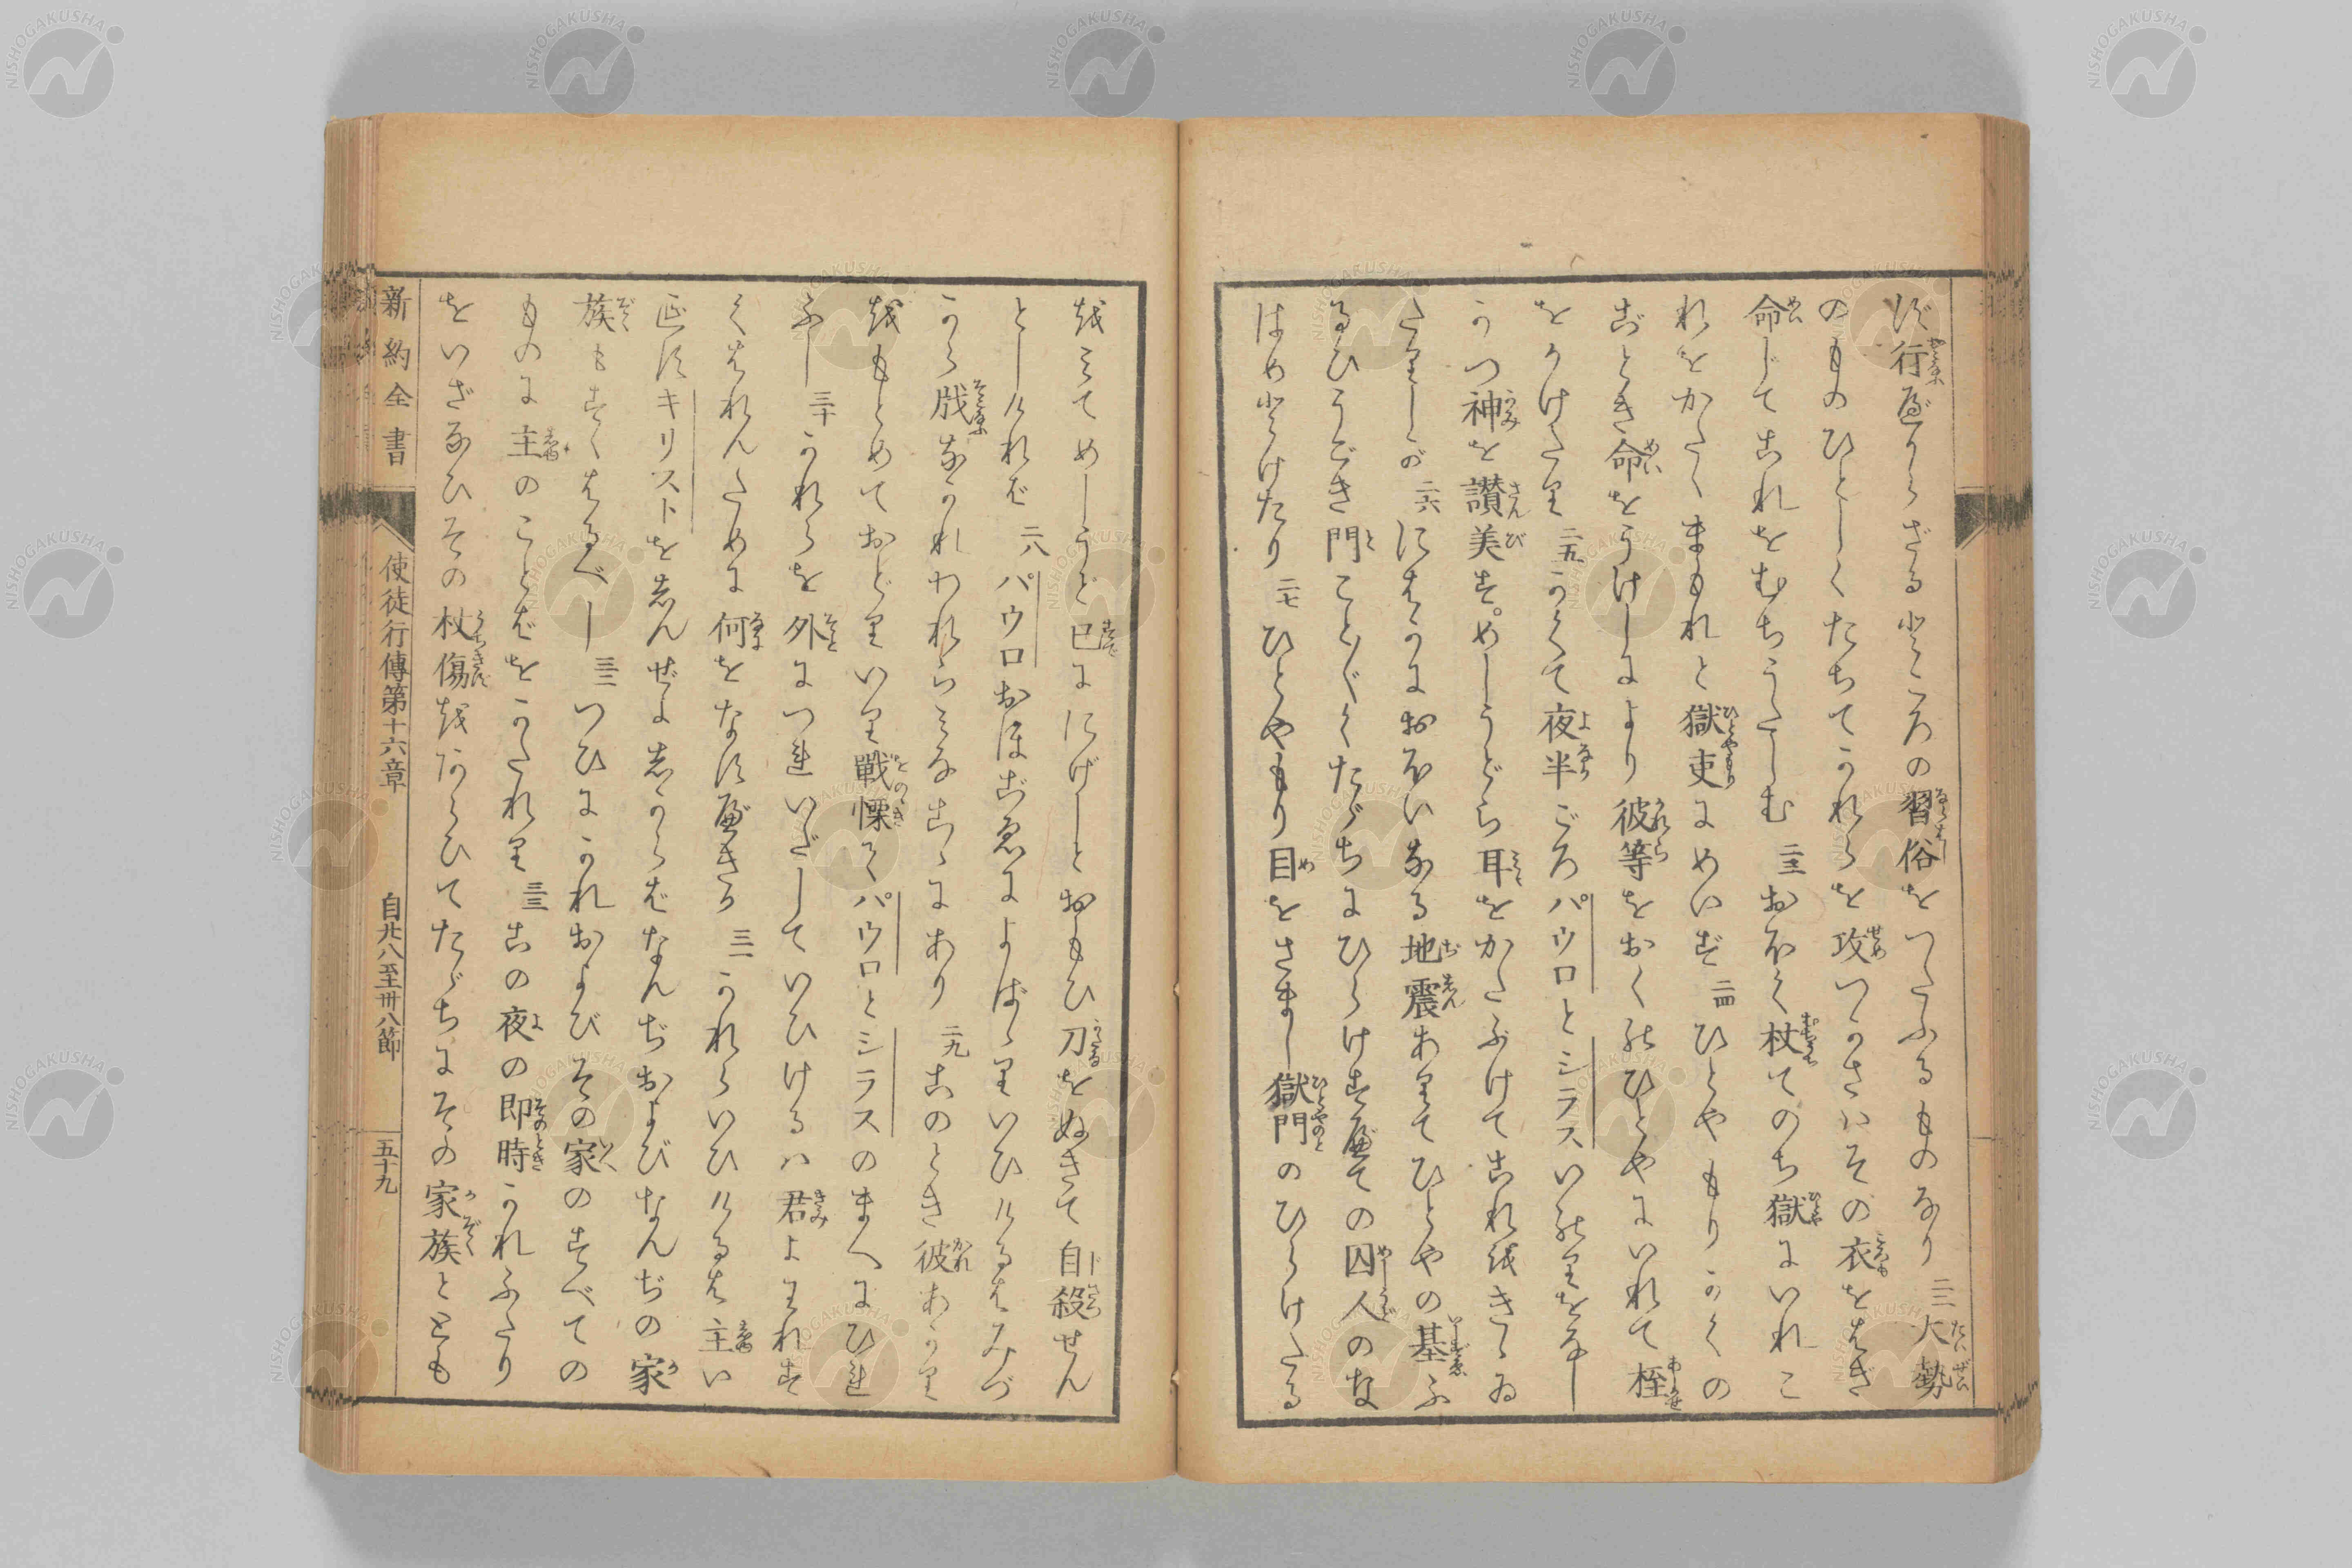 ず行べからざるところの習俗をつたふるものなり 二二 大勢
のものひとしくたちてかれらを攻つかさハその衣をはぎ
命じてこれをむちうたしむ 二三 おほく杖てのち獄にいれこ
れをかたくまもれと獄吏にめいず 二四 ひとやもりかくの
ごとき命をうけしにより彼等をおくのひとやにいれて桎
をかけたり 二五 かくて夜半ごろパウロとシラスいのりをなし
かつ神を讃美す。めしうどら耳をかたぶけてこれをきゝゐ
たりしが 二六 にはかにおほいなる地震ありてひとやの基ふ
るひうごき門こと〴〵くたゞちにひらけすべての囚人のな
はめとけたり 二七 ひとやもり目をさまし獄門のひらけたる
をみてめしうと已ににげしとおもひ刀をぬきて自殺せん
としければ 二八 パウロおほごゑによばゝりいひけるはみづ
から戕なかれわれらみなこゝにあり 二九 このとき彼あかり
をもとめておどりいり戰慄てパウロとシラスのまへにひれ
ふし 三十 かれらを外につれいだしていひけるハ君よわれす
くはれんために何をなすべきか 三一 かれらいひけるは主い
えすキリストをしんぜよしからばなんぢおよびなんぢの家
族もすくはるべし 三二 つひにかれおよびその家のすべての
ものに主のことばをかたれり 三三 この夜の即時かれふたり
をいざなひその杖傷をあらひてたゞちにその家族ととも
新約全書 使徒行傳第十六章 自廿八至卅八節 五十九
NISHOGAKUSHA